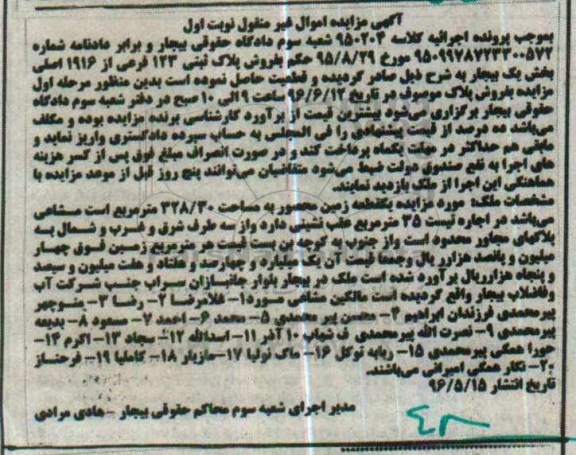 آگهی مزایده اموال غیر منقول نوبت اول
بموجب پرونده اجرائیه کلاسه ۹۵۰۲۰۴ شعبه سوم دادگاه حقوقی بیجار و برابر دادنامه شماره
۹۵۰۹۹۷۸۷۲۳۳۰۰۵۷۲ مورخ ۹۵/۸/۲۹ حکم بفروش پلاک ثبتی ۱۲۳ فرعی از ۱۹۱۶ اصلی
بخش یک بیجار به شرح ذیل صادر گردیده و قطعیت حاصل نموده است بدین منظور مرحله اول
مزایده بفروش پلاک موصوف در تاریخ ۹۶/۶/۱۲ ساعت ۹ الی ۱۰ صبح در دفتر شعبه سوم دادگاه
حقوقی بیجار برگزاری می‌شود بیشترین قیمت از برآورد کارشناسی برنده مزایده بوده و مکلف
می‌باشد ده درصد از قیمت پیشنهادی را فی المجلس به حساب سپرده دادگستری واریز نماید و
مابقی هم حداکثر در مهلت یکماه پرداخت کند و در صورت انصراف مبلغ فوق پس از کسر هزینه
های اجرا به نفع صندوق دولت ضبط می‌شود متقاضیان می‌توانند پنج روز قبل از موعد مزایده با
هماهنگی این اجرا از ملک بازدید نمایند.
مشخصات ملک: مورد مزایده یکقطعه زمین محصور به مساحت ۳۲۸/۳۰ مترمربع است مشاعی
می‌باشد در اجاره نیست ۳۵ مترمربع عقب نشینی دارد واز سه طرف شرق و غرب و شمال به
پلاکهای مجاور محدود است واز جنوب به کوچه بن بست قیمت هر مترمربع زمین فوق چهار
میلیون و پانصد هزار ریال وجمعا قیمت آن یک میلیارد و چهارصد و هفتاد و هفت میلیون و سیصد
و پنجاه هزارریال برآورد شده است ملک در بیجار بلوار جانبازان سراب جنب شرکت آب
وفاضلاب بیجار واقع گردیده است مالکین مشاعی مورد۱- غلامرضا ۲- رضا ۳- منوچهر
پیرمحمدی فرزندان ابراهیم ۴- محسن پیر محمدی ۵- محمد ۶- احمد ۷- مسعود ۸- بدیعه
پیرمحمدی ۹- نصرت الله پیرمحمدی ف شهاب ۱۰ آذر ۱۱- اسدالله ۱۲- سجاد ۱۳- اکرم ۱۴-
حورا همگی پیرمحمدی ۱۵- ربابه توکل ۱۶- ماک نولیا ۱۷-مازیار ۱۸- کاملیا ۱۹- فرحناز
۲۰- نگار همگی امیرانی می‌باشند.
تاریخ انتشار ۹۶/۵/۱۵
مدیر اجرای شعبه سوم محاکم حقوقی بیجار -هادی مرادی